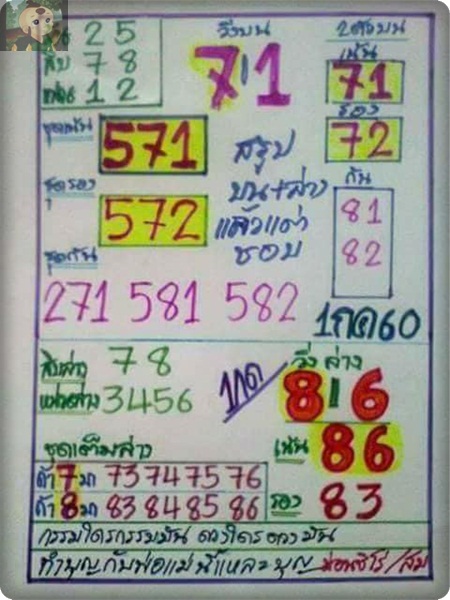 25
สิบ 78
หน่วย 12
วิ่งบน
7 1
2ตัวบน
เน้น
71
รอง
72
กัน
81
82
ชุดเน้น 571
สรุป
บน+ล่าง
แล้วแต่
ชอบ
ชุดรอง 572
ชุดกัน
271 581 582
1กค60
สิบล่าง 78
หน่วยล่าง 3456
วิ่งล่าง
8 6
ชุดเต็มล่าง
ถ้า 7 มา 73 74 75 76
ถ้า 8 มา 83 84 85 86
เน้น 86
รอง 83
กรรมใครกรรมมัน ดวงใครดวงมัน
ทำบุญกับพ่อแม่นี้แหละบุญ